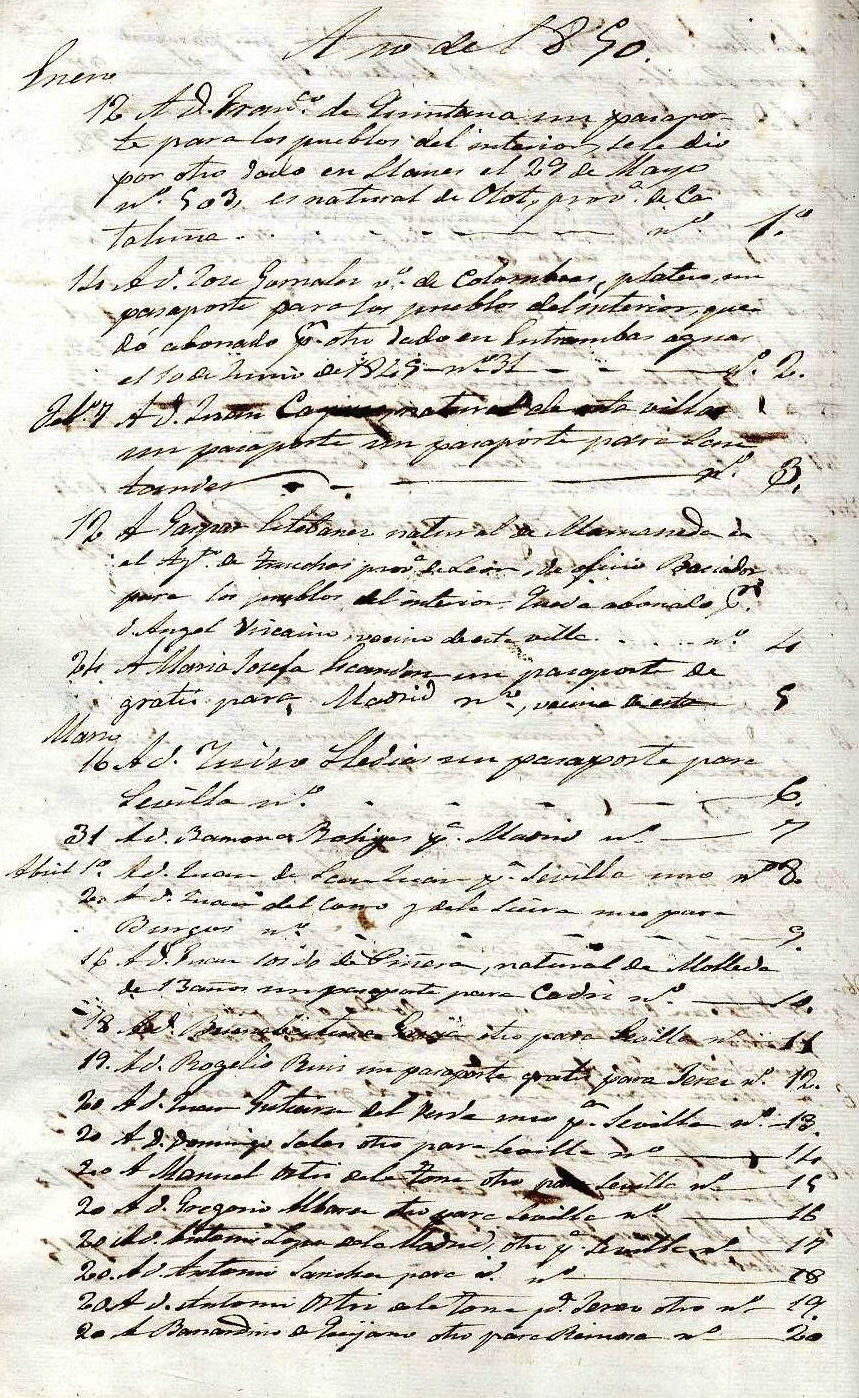 Año de 1850.
Enero
12 A D. Franco. de Quintana un pasapor-
te para los pueblos del interior, se le dio
por otro dado en Llanes el 29 de Mayo
nº. 503, es natural de Olot, prova. de Ca-
taluña . . . nº. 1.º
14 A d. Jose Gonzales vº. de Colombres, platero, un
pasaporte para los pueblos del interior, que-
dó abonado pr. otro dado en Entrambas aguas
el 10 de Junio de 1849 - nº 31 - - - nº. 2.
Febº 7 A d. Juan natural de esta villa
un pasaporte un pasaporte para San-
tander nº. 3.
12 A Gaspar Estebanez natural de en
el Ayto. de Truchas prova. de Leon, de oficio
para los pueblos del interior. Queda abonado pr.
d. Angel Viscaino, vecino de esta villa . . . nº 4
24. A Maria Josefa Escandon un pasaporte de
gratis para Madrid nº, vecina de esta 5
Marzo
16 A d. un pasaporte para
Sevilla nº. 6.
31 A d. Ramona pa. Madrid nº. 7
Abril 1º. A d. Juan de San Juan pa. Sevilla uno nº 8.
2. A d. Juan del Corro y de la Sierra uno para
Burgos nº. 9
16 A d. Juan de Piñera, natural de Molleda
de 13 años un pasaporte para Cadiz nº. 10.
18 A d. Buenabentura otro para Sevilla nº. 11
19. A d. Rogelio Ruiz un pasaporte gratis para Jerez nº. 12.
20 A d. Juan Gutierrez del uno pa. Sevilla nº. 13.
20 A d. Domingo Sales otro para Sevilla nº 14
20 A Manuel Ortiz de la Torre otro para Sevilla nº. 15
20 A d. Gregorio Albarez otro para Sevilla nº. 16
20 A d. Antonio Lopez de la Madrid, otro pa. Sevilla nº 17
20. A d. Antonio Sanchez para id. nº 18
20 A d. Antonio Ortiz de la Torre pa. Jerez otro nº 19.
20 A Bernardino de Quijano otro para Reinosa nº 20